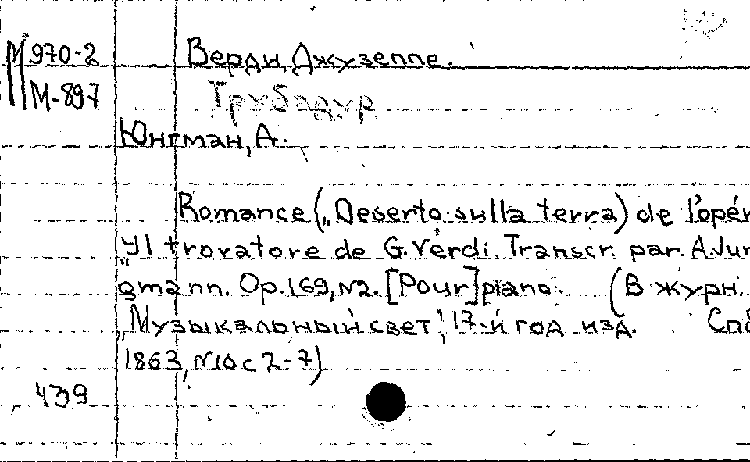 М970-2 Верди, Джузеппе.
М-897 Трубадур
Юнгман, А.
Romance („Deserto sulla terra) de l'opér
„Yl trovatore de G. Verdi. Transcr. par. A. Jun
gmann. Op. 169, N2. [Pour] piano. (В журн.
„Музыкальный свет", 17-й год изд. Спб
1863, N10 с 2-7)
439